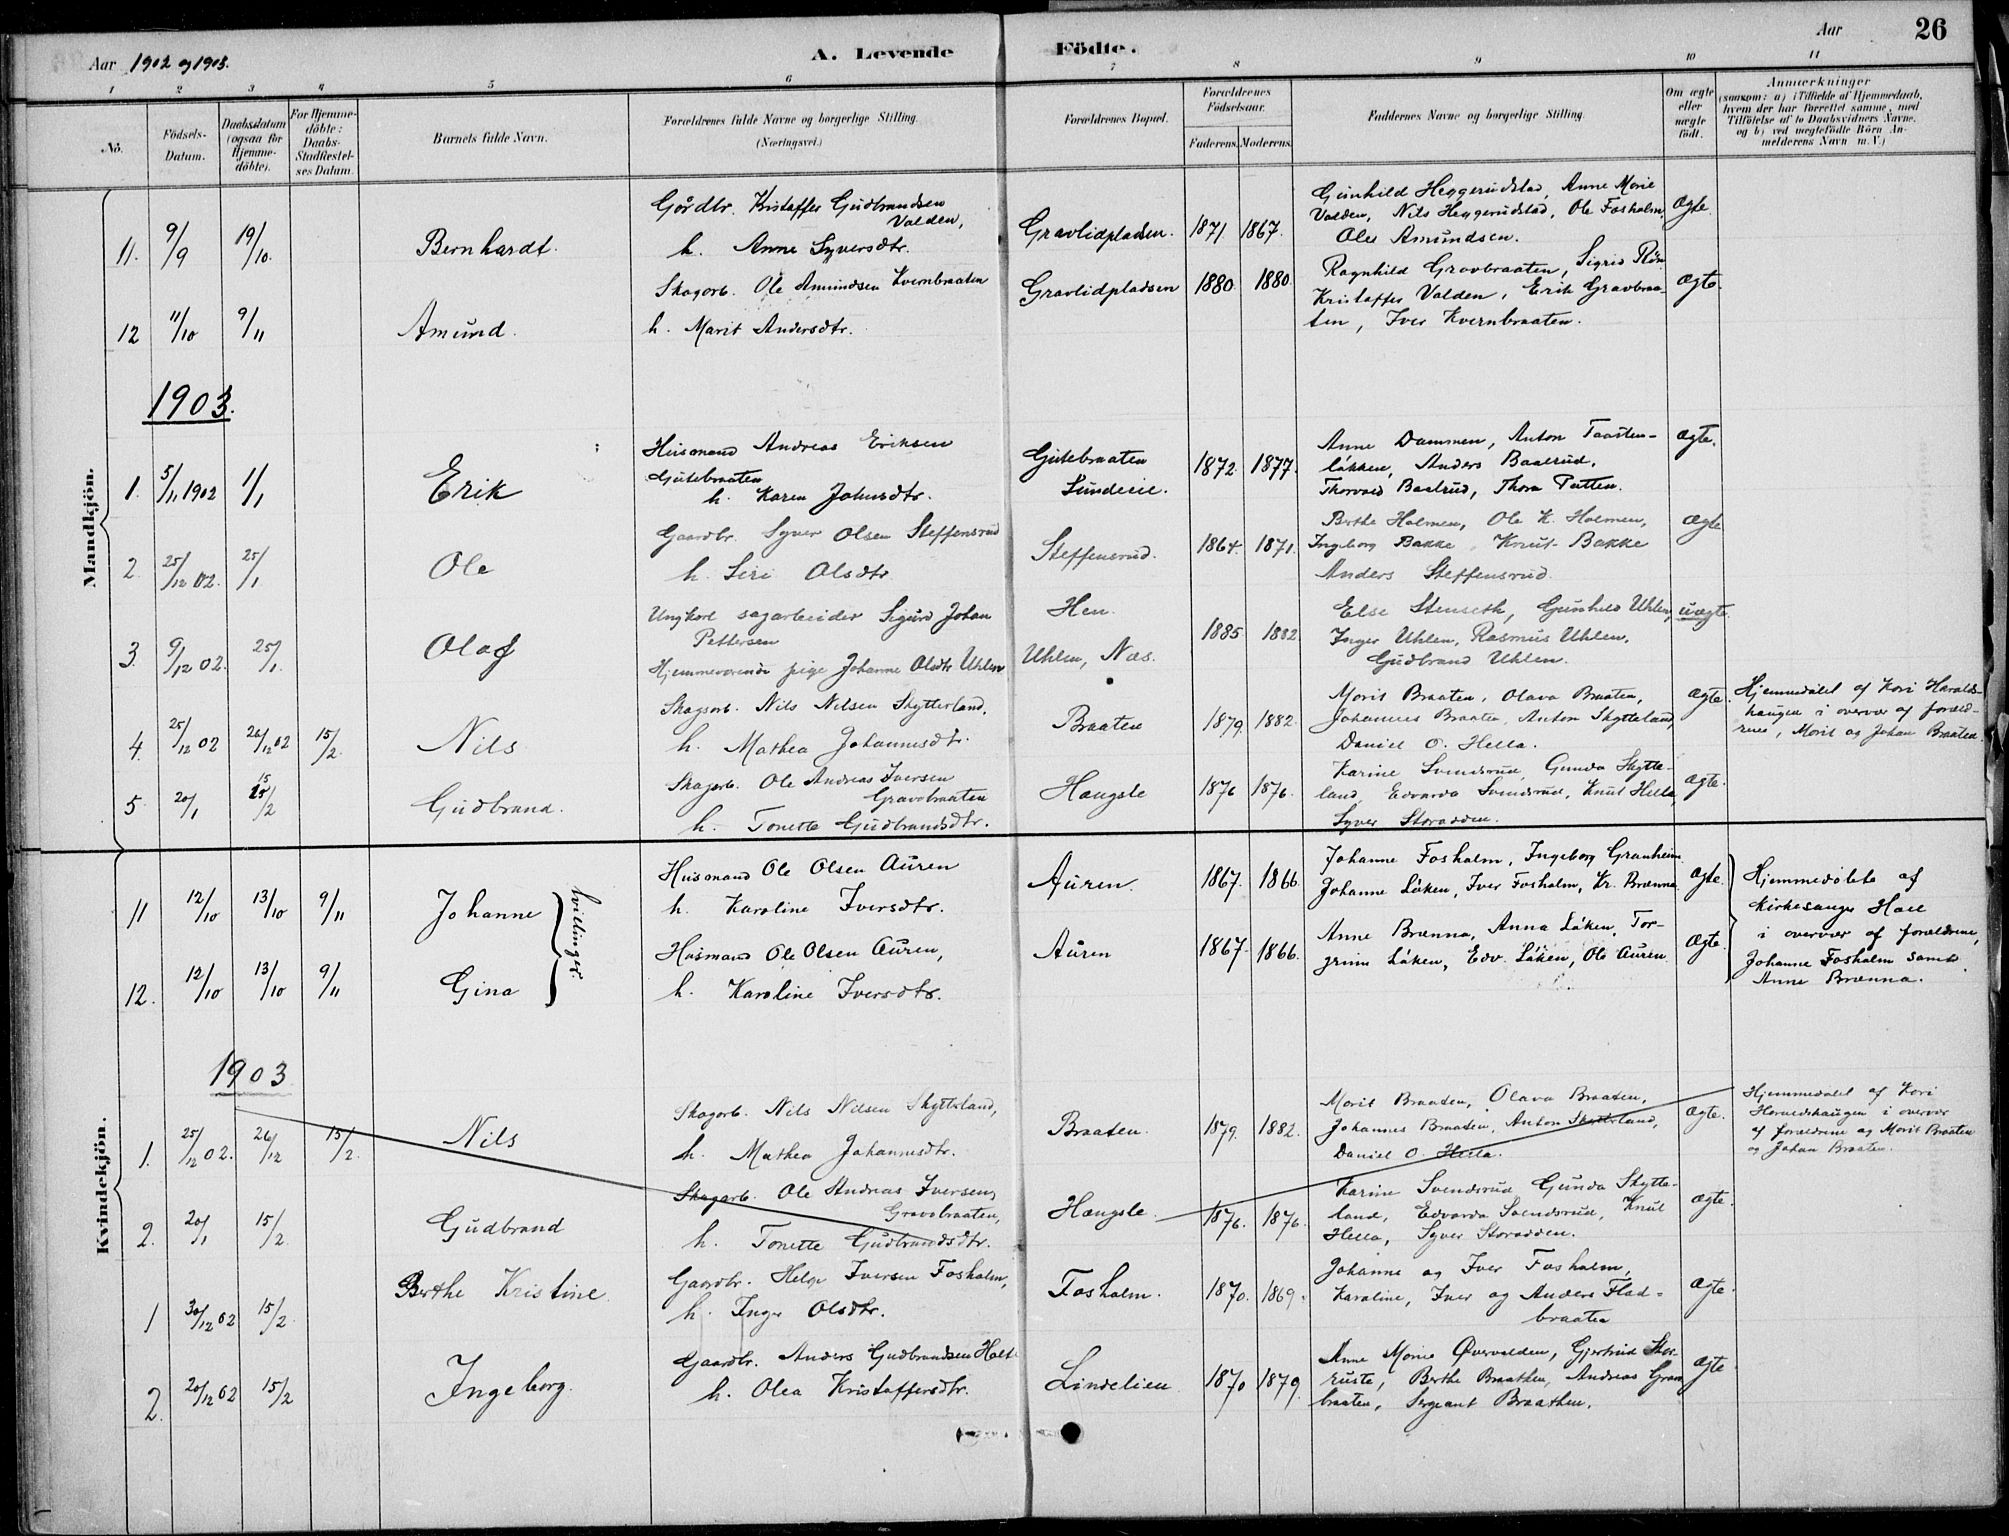 Aar 1902 og 1903.
A. Levende Födte.
Aar 26
1 2 3 4 5 6 7 8 9 10 11
No.
Födsels-Datum.
Daabsdatum (ogsaa for Hjemmedöbte).
For Hjemmedöbte: Daabs-Stadfæstelses Datum.
Barnets fulde Navn.
Forældrenes fulde Navne og borgerlige Stilling (Næringsvei.)
Forældrenes Bopæl.
Forældrenes Födselsaar.
Faderens. Moderens.
Faddernes Navne og borgerlige Stilling.
Om ægte eller uægte født.
Anmærkninger
(saasom: a) i Tilfælde af Hjemmedaab, hvem der har forrettet samme, med Tilföielse af to Daabsvidners Navne, og b) ved uægtefödte Börn Anmelderens Navn m. V.)
Mandkjön.
11. 9/9 19/10. Bernhardt.
Gårdbr. Kristaffer Gudbrandsen Valden,
h. Anne Syversdtr.
Gravlidpladsen. 1871 1867.
Gunhild Heggerudstad, Anne Marie
Valden, Nils Heggerudstad, Ole Fosholm
Ole Amundsen.
Ægte
12 11/10 9/11 Amund.
Skogarb. Ole Amundsen Kvernbraaten
h. Marit Andersdtr.
Gravlidpladsen 1880. 1880.
Ragnhild Gravbraaten, Sigrid
Kristaffer Valden, Erik Gravbraa-
ten, Iver Kvernbraaten.
Ægte.
1903.
1. 5/11 1902 1/1 Erik
Husmand Andreas Eriksen
Gutebraaten
h. Karen Johnsdtr.
Gutebraaten
1872. 1877.
Anne Dammen, Anton Taasten-
løkken, Anders Baalrud,
Thorvald Baalrud, Thora
Ægte.
2. 25/12 02. 25/1 Ole
Gaardbr. Syver Olsen Steffensrud
h. Siri Olsdtr.
Steffensrud. 1864. 1871.
Berthe Holmen, Ole K. Holmen,
Ingeborg Bakke, Knut Bakke
Anders Steffensrud.
Ægte
3. 9/12 02. 25/1. Olaf
Ungkarl sagarbeider Sigurd Johan
Pettersen
Hjemmeværende pige Johanne Olsdtr Uhlen
Hen.
Uhlen, Næs.
1885. 1882
Else Stenseth, Gunhild Uhlen,
Inger Uhlen, Rasmus Uhlen,
Gudbrand Uhlen.
uægte
4. 25/12 02 26/12 02 15/2. Nils
Skogarb. Nils Nilsen Skytterland,
h. Mathea Johannesdtr.
Braaten 1879. 1882.
Marit Braaten, Olava Braaten,
Johannes Braaten, Anton Skytteland,
Daniel O. Hella.
Ægte.
Hjemmedøbt af Kari Haralds-
haugen i overvær af foræld-
rene, Marit og Johan Braaten
5. 20/1 15/2 Gudbrand.
Skogarb. Ole Andreas Iversen
Gravbraaten
h. Tonette Gudbrandsdtr.
Haugsle 1876 1876.
Karine Svendsrud, Gunda Skytte-
land, Edvarda Svendsrud, Knut Hella
Syver Storødden.
Ægte.
Kvindekjön.
11 12/10 13/10 9/11 Johanne
tvillinger.
Husmand Ole Olsen Auren
h. Karoline Iversdtr.
Auren. 1867. 1866.
Johanne Fosholm, Ingeborg Granheim
Johanne Løken, Iver Fosholm, Kr. Brænna
Ægte.
Hjemmedøbte af
kirkesanger Hall
i overvær af forældrene,
Johanne Fosholm samt
Anne Brænna.
12. 12/10 13/10 9/11 Gina
Husmand Ole Olsen Auren,
h. Karoline Iversdtr.
Auren 1867. 1866.
Anne Brænna, Anna Løken, Tor-
grim Løken, Edv. Løken, Ole Auren
Ægte.
1903
1. 25/12 02. 26/12 15/2. Nils
Skogarb. Nils Nilsen Skytteland,
h. Mathea Johannesdtr.
Braaten. 1879. 1882.
Marit Braaten, Olava Braaten,
Johannes Braaten, Anton Skytterland,
Daniel O. Hella.
Ægte.
Hjemmedøbt af Kari
Haraldshaugen i overvær
af forældrene og Marit Braaten
og Johan Braaten.
2. 20/1 15/2. Gudbrand
Skogarb. Ole Andreas Iversen,
Gravbraaten,
h. Tonette Gudbrandsdtr.
Haugsle. 1876. 1876.
Karine Svendsrud Gunda Skytte-
land, Edvarda Svendsrud, Knut
Hella, Syver Storødden.
Ægte.
1 30/12 02 15/2. Berthe Kristine
Gaardbr. Helge Iversen Fosholm,
h. Inger Olsdtr.
Fosholm. 1870. 1869.
Johanne og Iver Fosholm,
Karoline, Iver og Anders Flad-
braaten
Ægte.
2. 20/12 02 15/2 Ingeborg.
Gaardbr. Anders Gudbrandsen
h. Olea Kristaffersdtr.
Lindelien 1870 1879.
Anne Marie Øvervalden, Gjertrud Stor-
ruste, Berthe Braathen, Andreas Grav
braaten, Sergeant Braathen.
Ægte